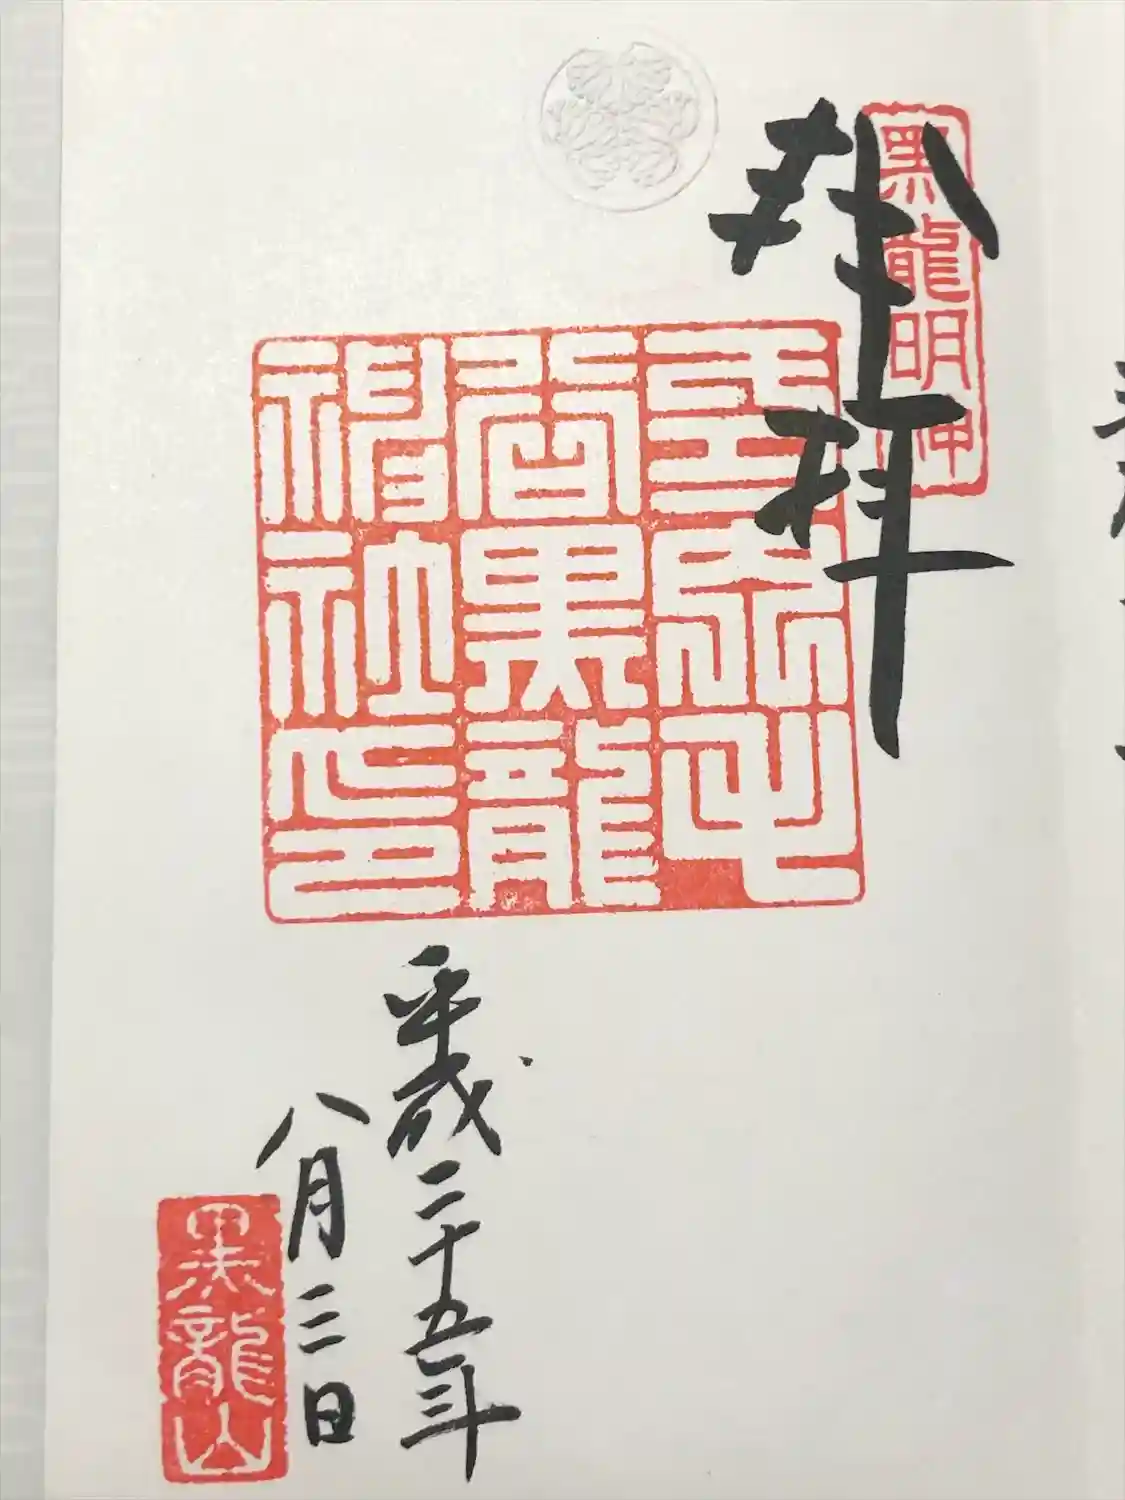 拝
黒龍明神
毛
谷黒龍
神社印
平成二十五年
八月三日
黒龍山